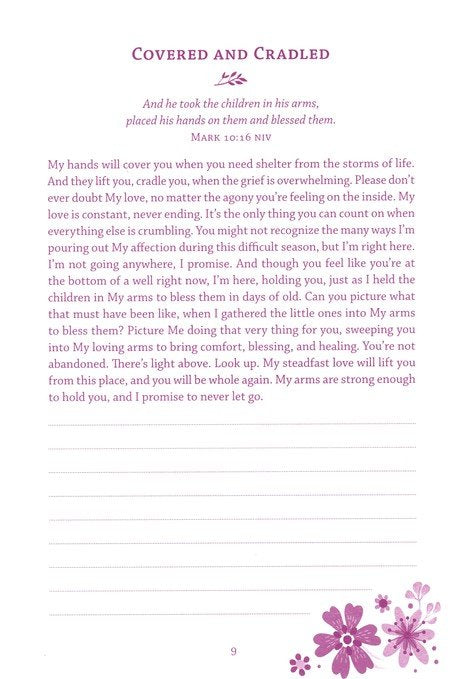 Covered and Cradled
And he took the children in his arms,
placed his hands on them and blessed them.
Mark 10:16 NIV
My hands will cover you when you need shelter from the storms of life.
And they lift you, cradle you, when the grief is overwhelming. Please don't
ever doubt My love, no matter the agony you're feeling on the inside. My
love is constant, never ending. It's the only thing you can count on when
everything else is crumbling. You might not recognize the many ways I'm
pouring out My affection during this difficult season, but I'm right here.
I'm not going anywhere, I promise. And though you feel like you're at
the bottom of a well right now, I'm here, holding you, just as I held the
children in My arms to bless them in days of old. Can you picture what
that must have been like, when I gathered the little ones into My arms
to bless them? Picture Me doing that very thing for you, sweeping you
into My loving arms to bring comfort, blessing, and healing. You're not
abandoned. There's light above. Look up. My steadfast love will lift you
from this place, and you will be whole again. My arms are strong enough
to hold you, and I promise to never let go.
9